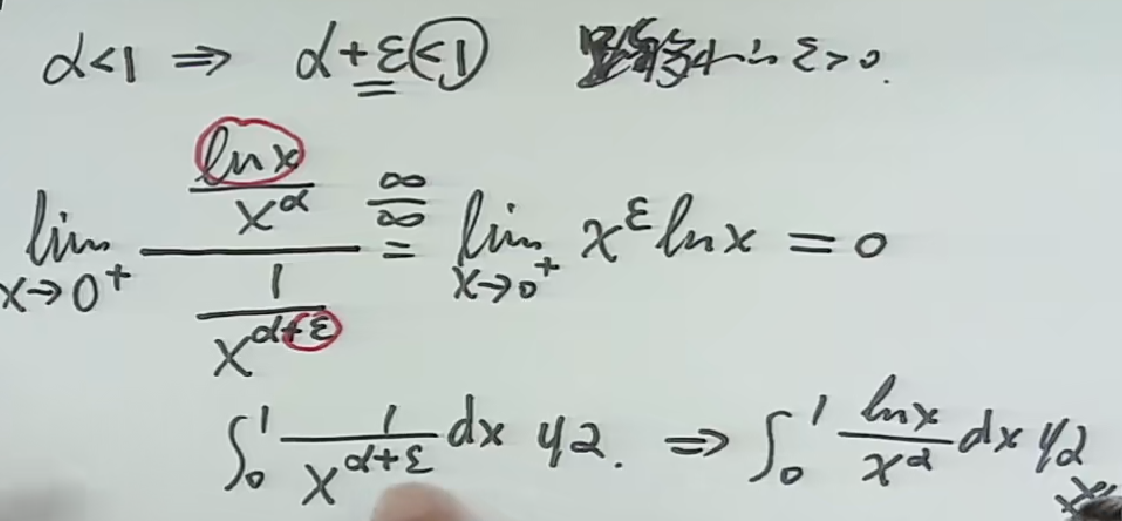 α<1 ⇒ α+ε<1 ε>0.
lim x→0⁺ (ln x / x^α) / (1 / x^(α+ε)) ∞/∞ = lim x→0⁺ x^ε ln x = 0
∫₀¹ 1/x^(α+ε) dx 收. ⇒ ∫₀¹ ln x/x^α dx 收